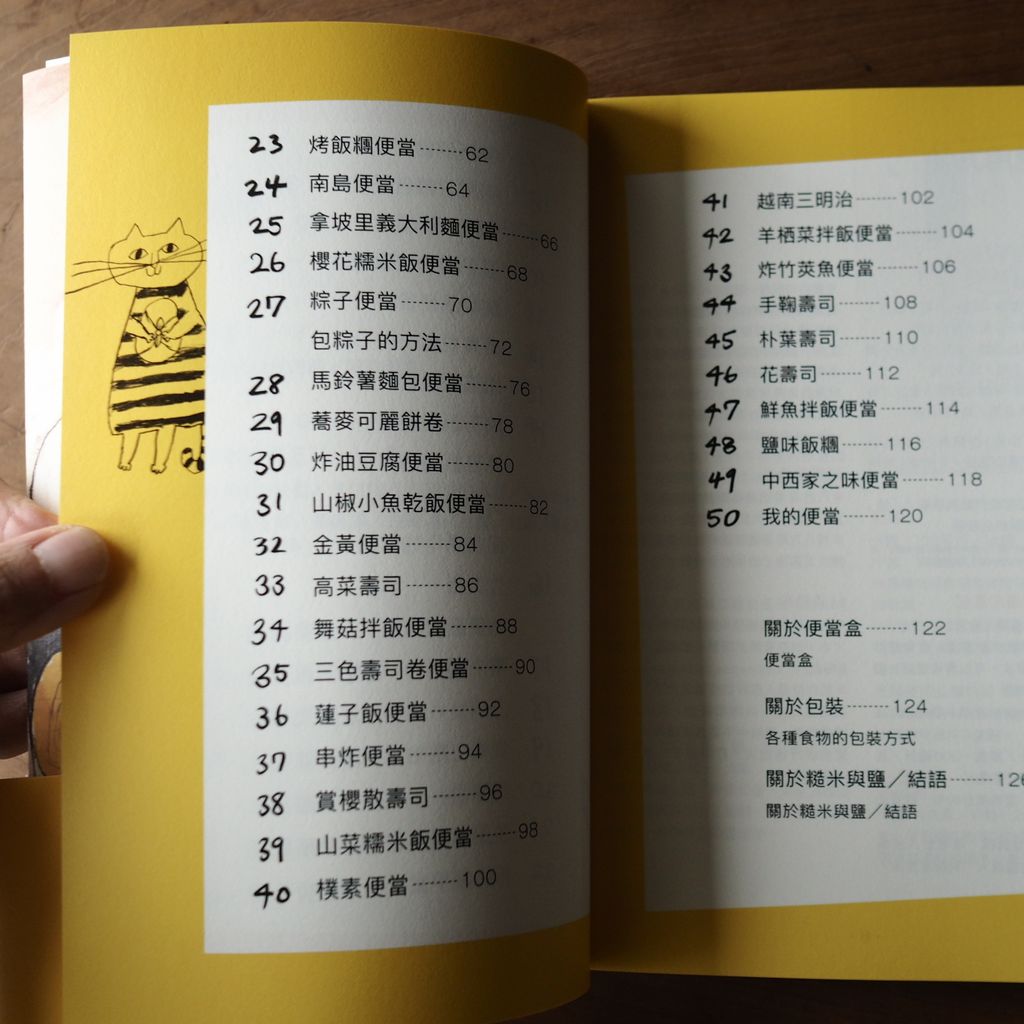 23 烤飯糰便當--------62
24 南島便當--------64
25 拿坡里義大利麵便當--------66
26 櫻花糯米飯便當--------68
27 粽子便當--------70
包粽子的方法--------72
28 馬鈴薯麵包便當--------76
29 蕎麥可麗餅卷--------78
30 炸油豆腐便當--------80
31 山椒小魚乾飯便當--------82
32 金黃便當--------84
33 高菜壽司--------86
34 舞菇拌飯便當--------88
35 三色壽司卷便當--------90
36 蓮子飯便當--------92
37 串炸便當--------94
38 賞櫻散壽司--------96
39 山菜糯米飯便當--------98
40 樸素便當--------100
41 越南三明治--------102
42 羊栖菜拌飯便當--------104
43 炸竹莢魚便當--------106
44 手鞠壽司--------108
45 朴葉壽司--------110
46 花壽司--------112
47 鮮魚拌飯便當--------114
48 鹽味飯糰--------116
49 中西家之味便當--------118
50 我的便當--------120
關於便當盒--------122
便當盒
關於包裝--------124
各種食物的包裝方式
關於糙米與鹽／結語--------126
關於糙米與鹽／結語